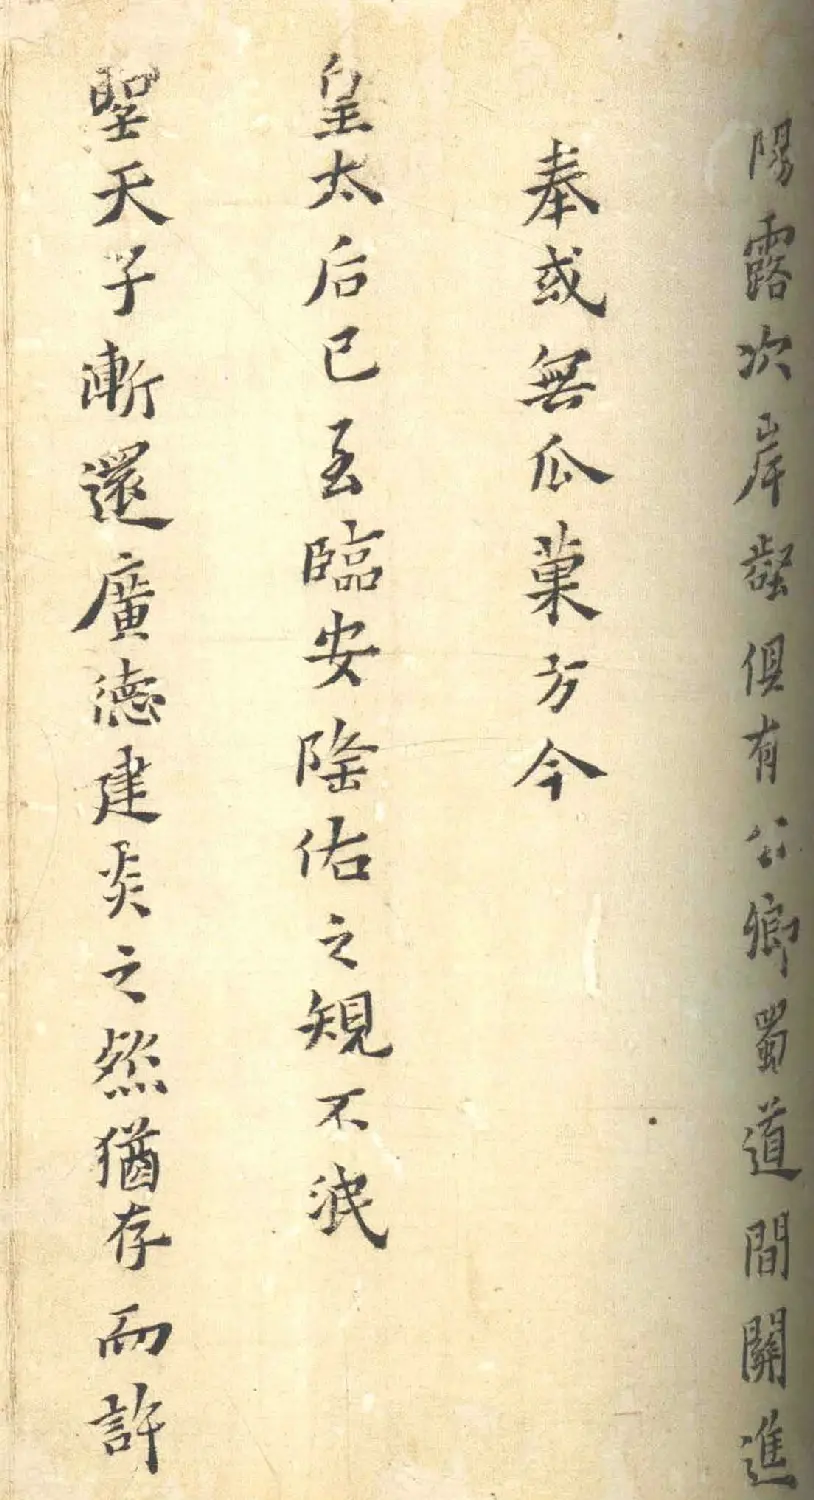 陽露次岸俱有公卿蜀道間關進
奉或無瓜菓方今
皇太后已至臨安隆佑之規不泯
聖天子漸還廣德建炎之猶存而許